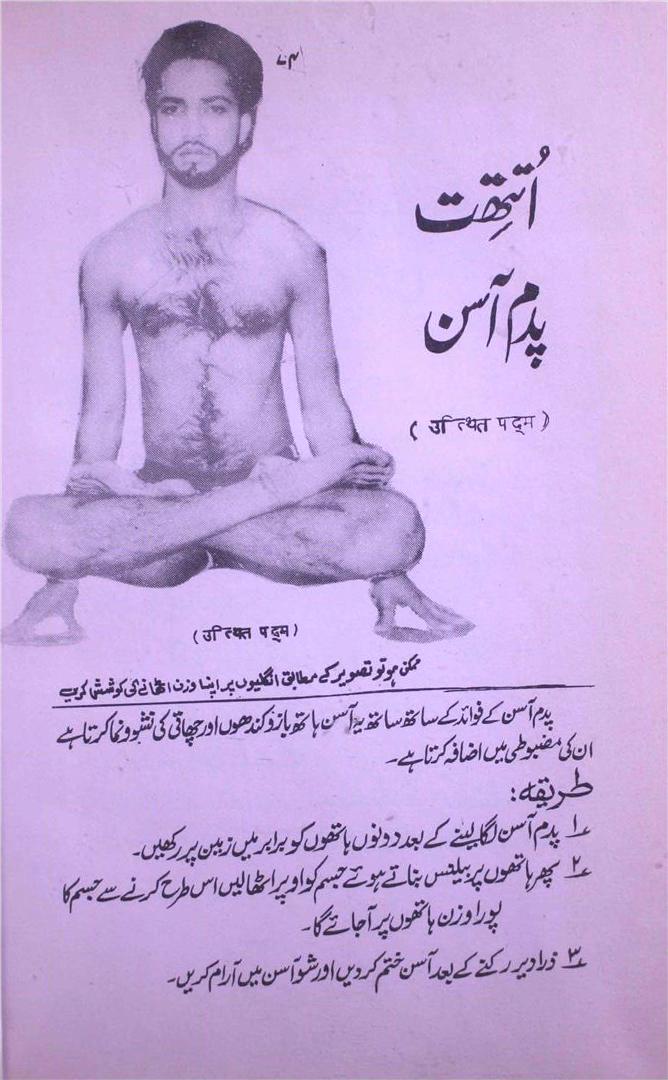 ۷۴
اُتِتھِت
پدم آسن
( उत्थित पद्म )
( उत्थित पद्म )
ممکن ہو تو تصویر کے مطابق انگلیوں پر اپنا وزن اٹھانے کی کوشش کریں
پدم آسن کے فوائد کے ساتھ ساتھ یہ آسن ہاتھ بازو کندھوں اور چھاتی کی نشوونما کرتا ہے
ان کی مضبوطی میں اضافہ کرتا ہے۔
طریقہ:
۱؎ پدم آسن لگا لینے کے بعد دونوں ہاتھوں کو برابر میں زمین پر رکھیں۔
۲؎ پھر ہاتھوں پر بیلنس بناتے ہوئے جسم کو اوپر اٹھا لیں اس طرح کرنے سے جسم کا
پورا وزن ہاتھوں پر آجائے گا۔
۳؎ ذرا دیر رکنے کے بعد آسن ختم کر دیں اور شو آسن میں آرام کریں۔